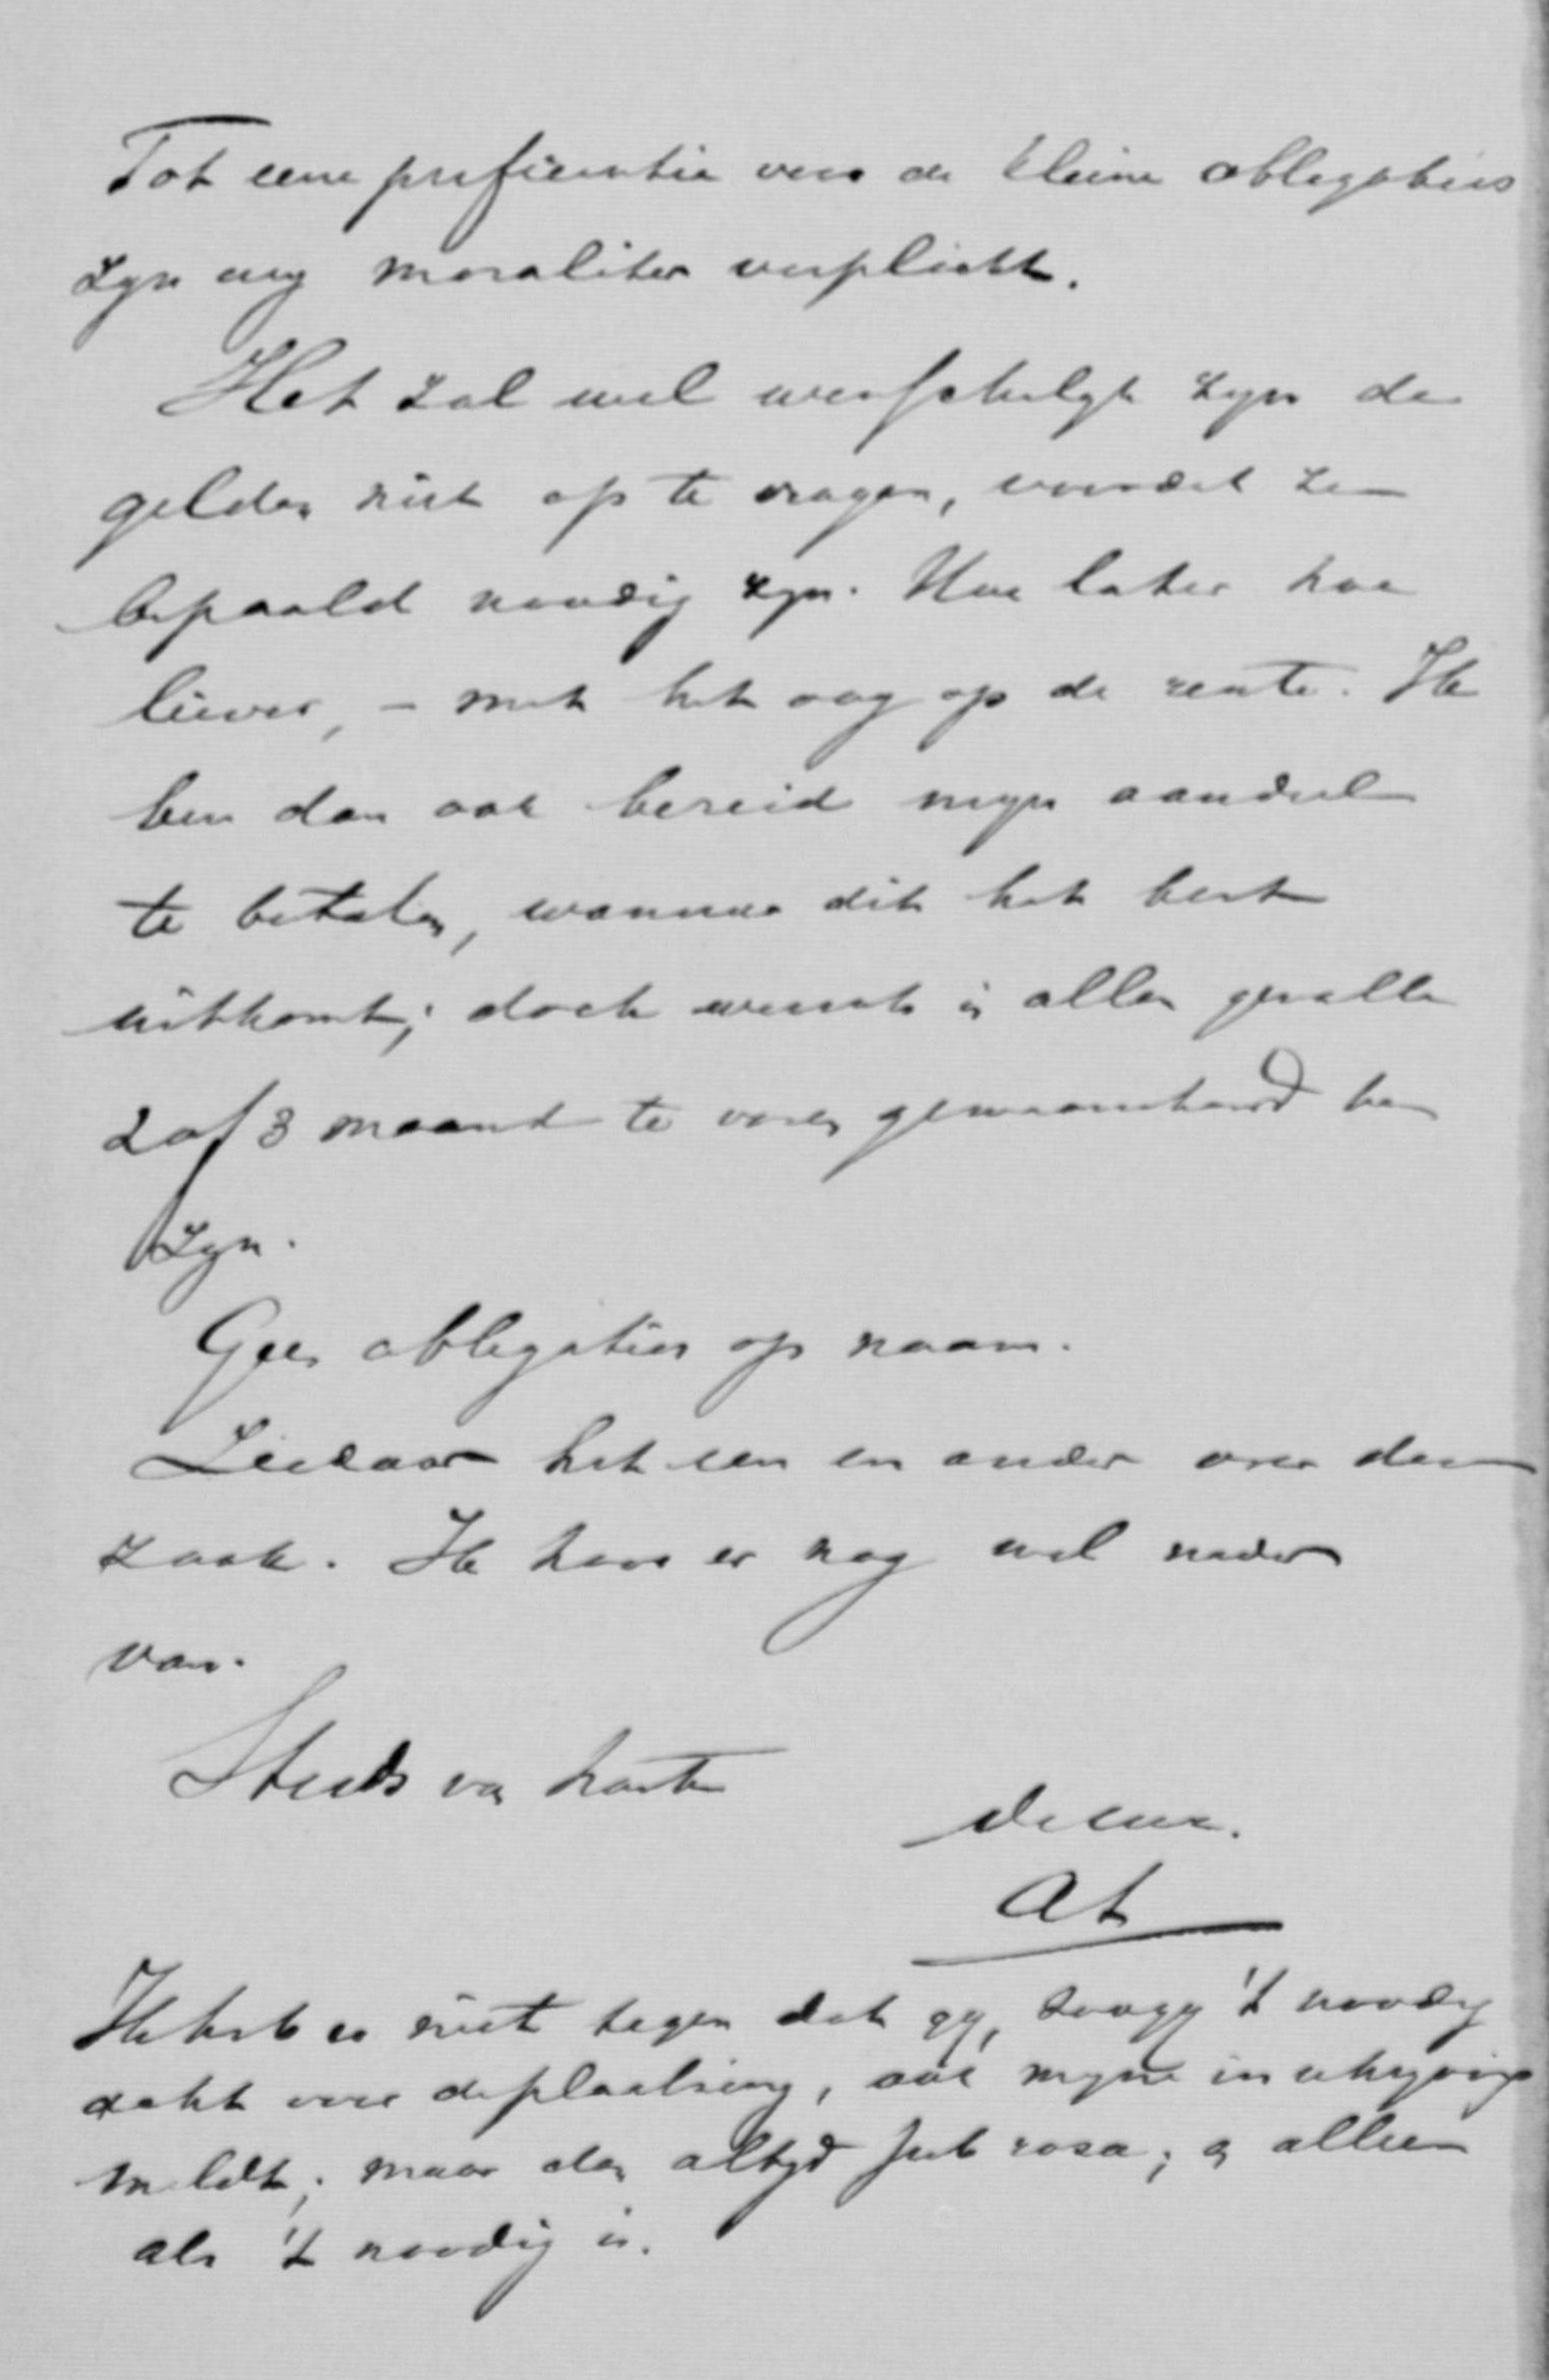 Tot eene preferentie voor de kleine obligaties
zyn wy moraliter verplicht.
Het zal wel wenschelyk zyn de
gelden niet op te vragen, voordat ze
bepaald noodig zyn. Hoe later hoe
liever, - met het oog op de rente. Ik
ben dan ook bereid myn aandeel
te betalen, wanneer dit het best
uitkomt; doch wensch in allen gevalle
2 of 3 maand te voren gewaarschuwd te
zyn.
Geen obligaties op naam.
Ziedaar het een en ander over deze
zaak. Ik hoor er nog wel nader
van.
Steeds van harte
de uwe.
At
Ik heb er niet tegen dat gy, zoo gy 't noodig
acht voor de plaatsing, ook myne inschryving
meldt; maar dan altyd sub rosa; en alleen
als 't noodig is.